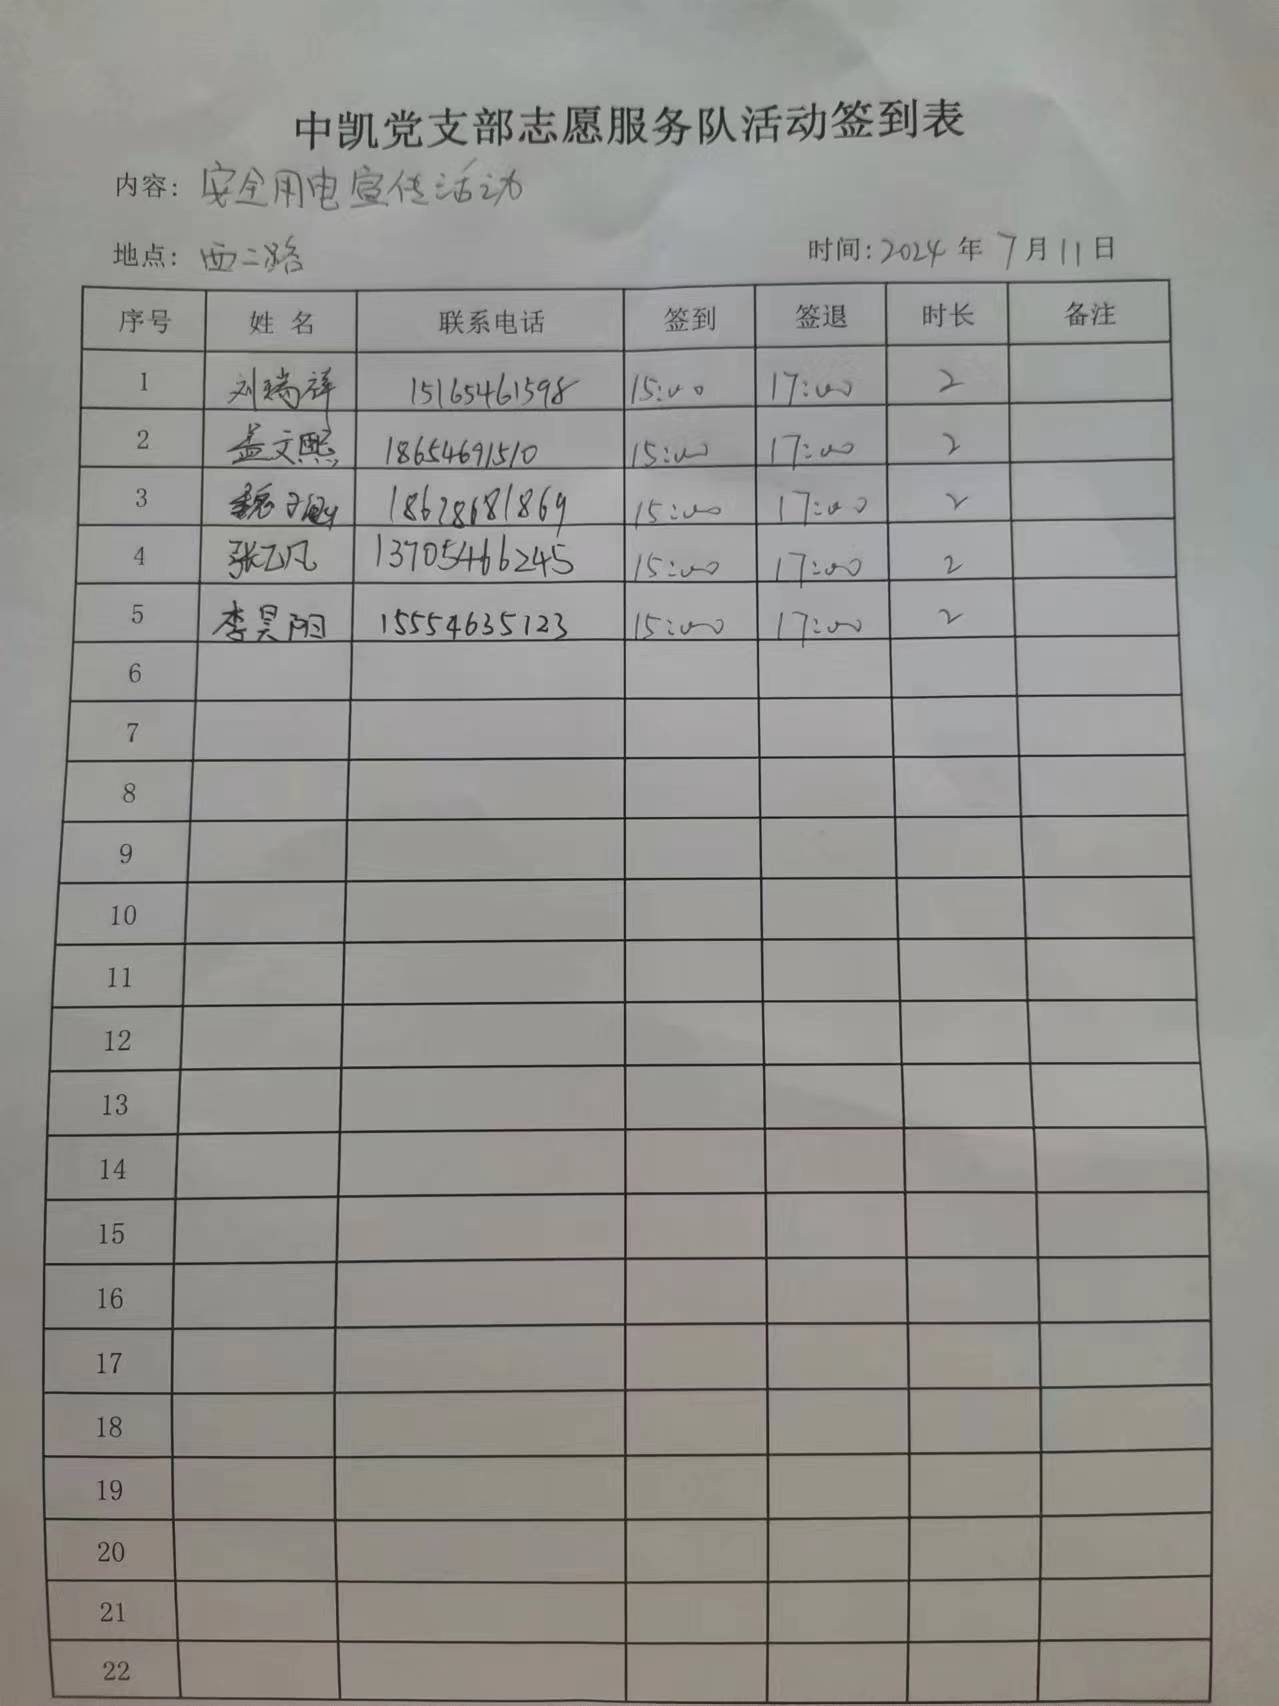 中凯党支部志愿服务队活动签到表
内容: 安全用电宣传活动
地点: 西二路 时间: 2024 年 7 月 11 日
序号 姓 名 联系电话 签到 签退 时长 备注
1 刘瑞祥 15165461598 15:00 17:00 2
2 孟文熙 18654691510 15:00 17:00 2
3 魏 18678681869 15:00 17:00 2
4 张飞凡 13705466245 15:00 17:00 2
5 李昊阳 15554635123 15:00 17:00 2
6
7
8
9
10
11
12
13
14
15
16
17
18
19
20
21
22